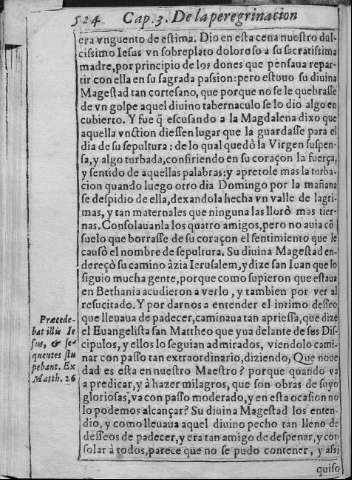 524 Cap. 3. De la peregrinacion
era vnguento de estima. Dio en esta cena nuestro dul-
cissimo Iesus vn sobreplato doloroso a su sacratissima
madre, por principio de los dones que pensaua repar-
tir con ella en su sagrada passion: pero estuuo su diuina
Magestad tan cortesano, que porque no se le quebrasse
de vn golpe aquel diuino tabernaculo se lo dio algo en
cubierto. Y fue q̃ escusando a la Magdalena dixo que
aquella vnction diessen lugar que la guardasse para el
dia de su sepultura: de lo qual quedò la Virgen suspen-
sa, y algo turbada, confiriendo en su coraçon la fuerça,
y sentido de aquellas palabras: y apretole mas la turba-
cion quando luego otro dia Domingo por la mañana
se despidio de ella, dexandola hecha vn valle de lagri-
mas, y tan maternales que ninguna las llorò mas tier-
nas. Consolauanla los quatro amigos, pero no auia cõ
suelo que borrasse de su coraçon el sentimiento que le
causò el nombre de sepultura. Su diuina Magestad en-
dereçò su camino àzia Ierusalem, y dize san Iuan que lo
siguio mucha gente, porque como supieron que estaua
en Bethania acusieron a verlo, y tambien por ver al
resucitado. Y por darnos a entender el intimo desseo
que lleuaua de padecer, caminaua tan apriessa, que dize
el Euangelista san Mattheo que yua delante de sus Dis-
cipulos, y ellos lo seguian admirados, viendolo cami-
nar con passo tan extraordinario, diziendo, Que noue
dad es esta en nuestro Maestro? porque quando va
a predicar, y à hazer milagros, que son obras de suyo
gloriosas, va con passo moderado, y en esta ocasion no
lo podemos alcançar? Su diuina Magestad los enten-
dio, y como lleuaua aquel diuino pecho tan lleno de
desseos de padecer, y era tan amigo de despenar, y con
solar à todos, parece que no se pudo contener, y assi
quiso
Præcede-
bat illis Ie
sus, & se-
quentes stu
pebant. Ex
Matth. 26